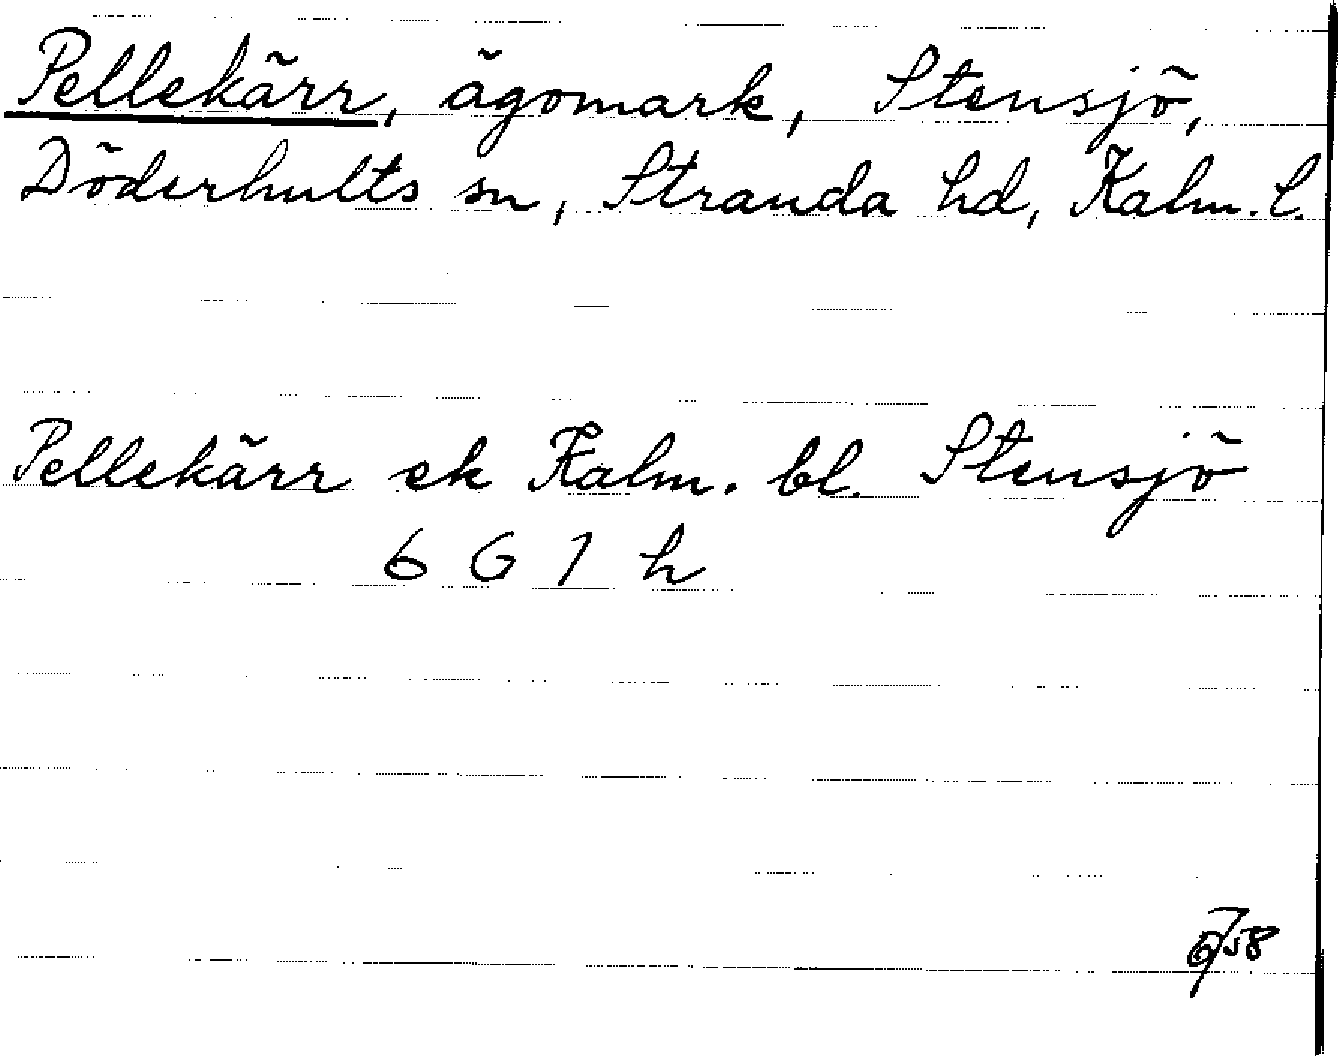 Pellekärr, ägomark, Stensjö,
Döderhults sn, Stranda hd, Kalm. l.
Pellekärr ek Kalm. bl. Stensjö
6 G 1 h